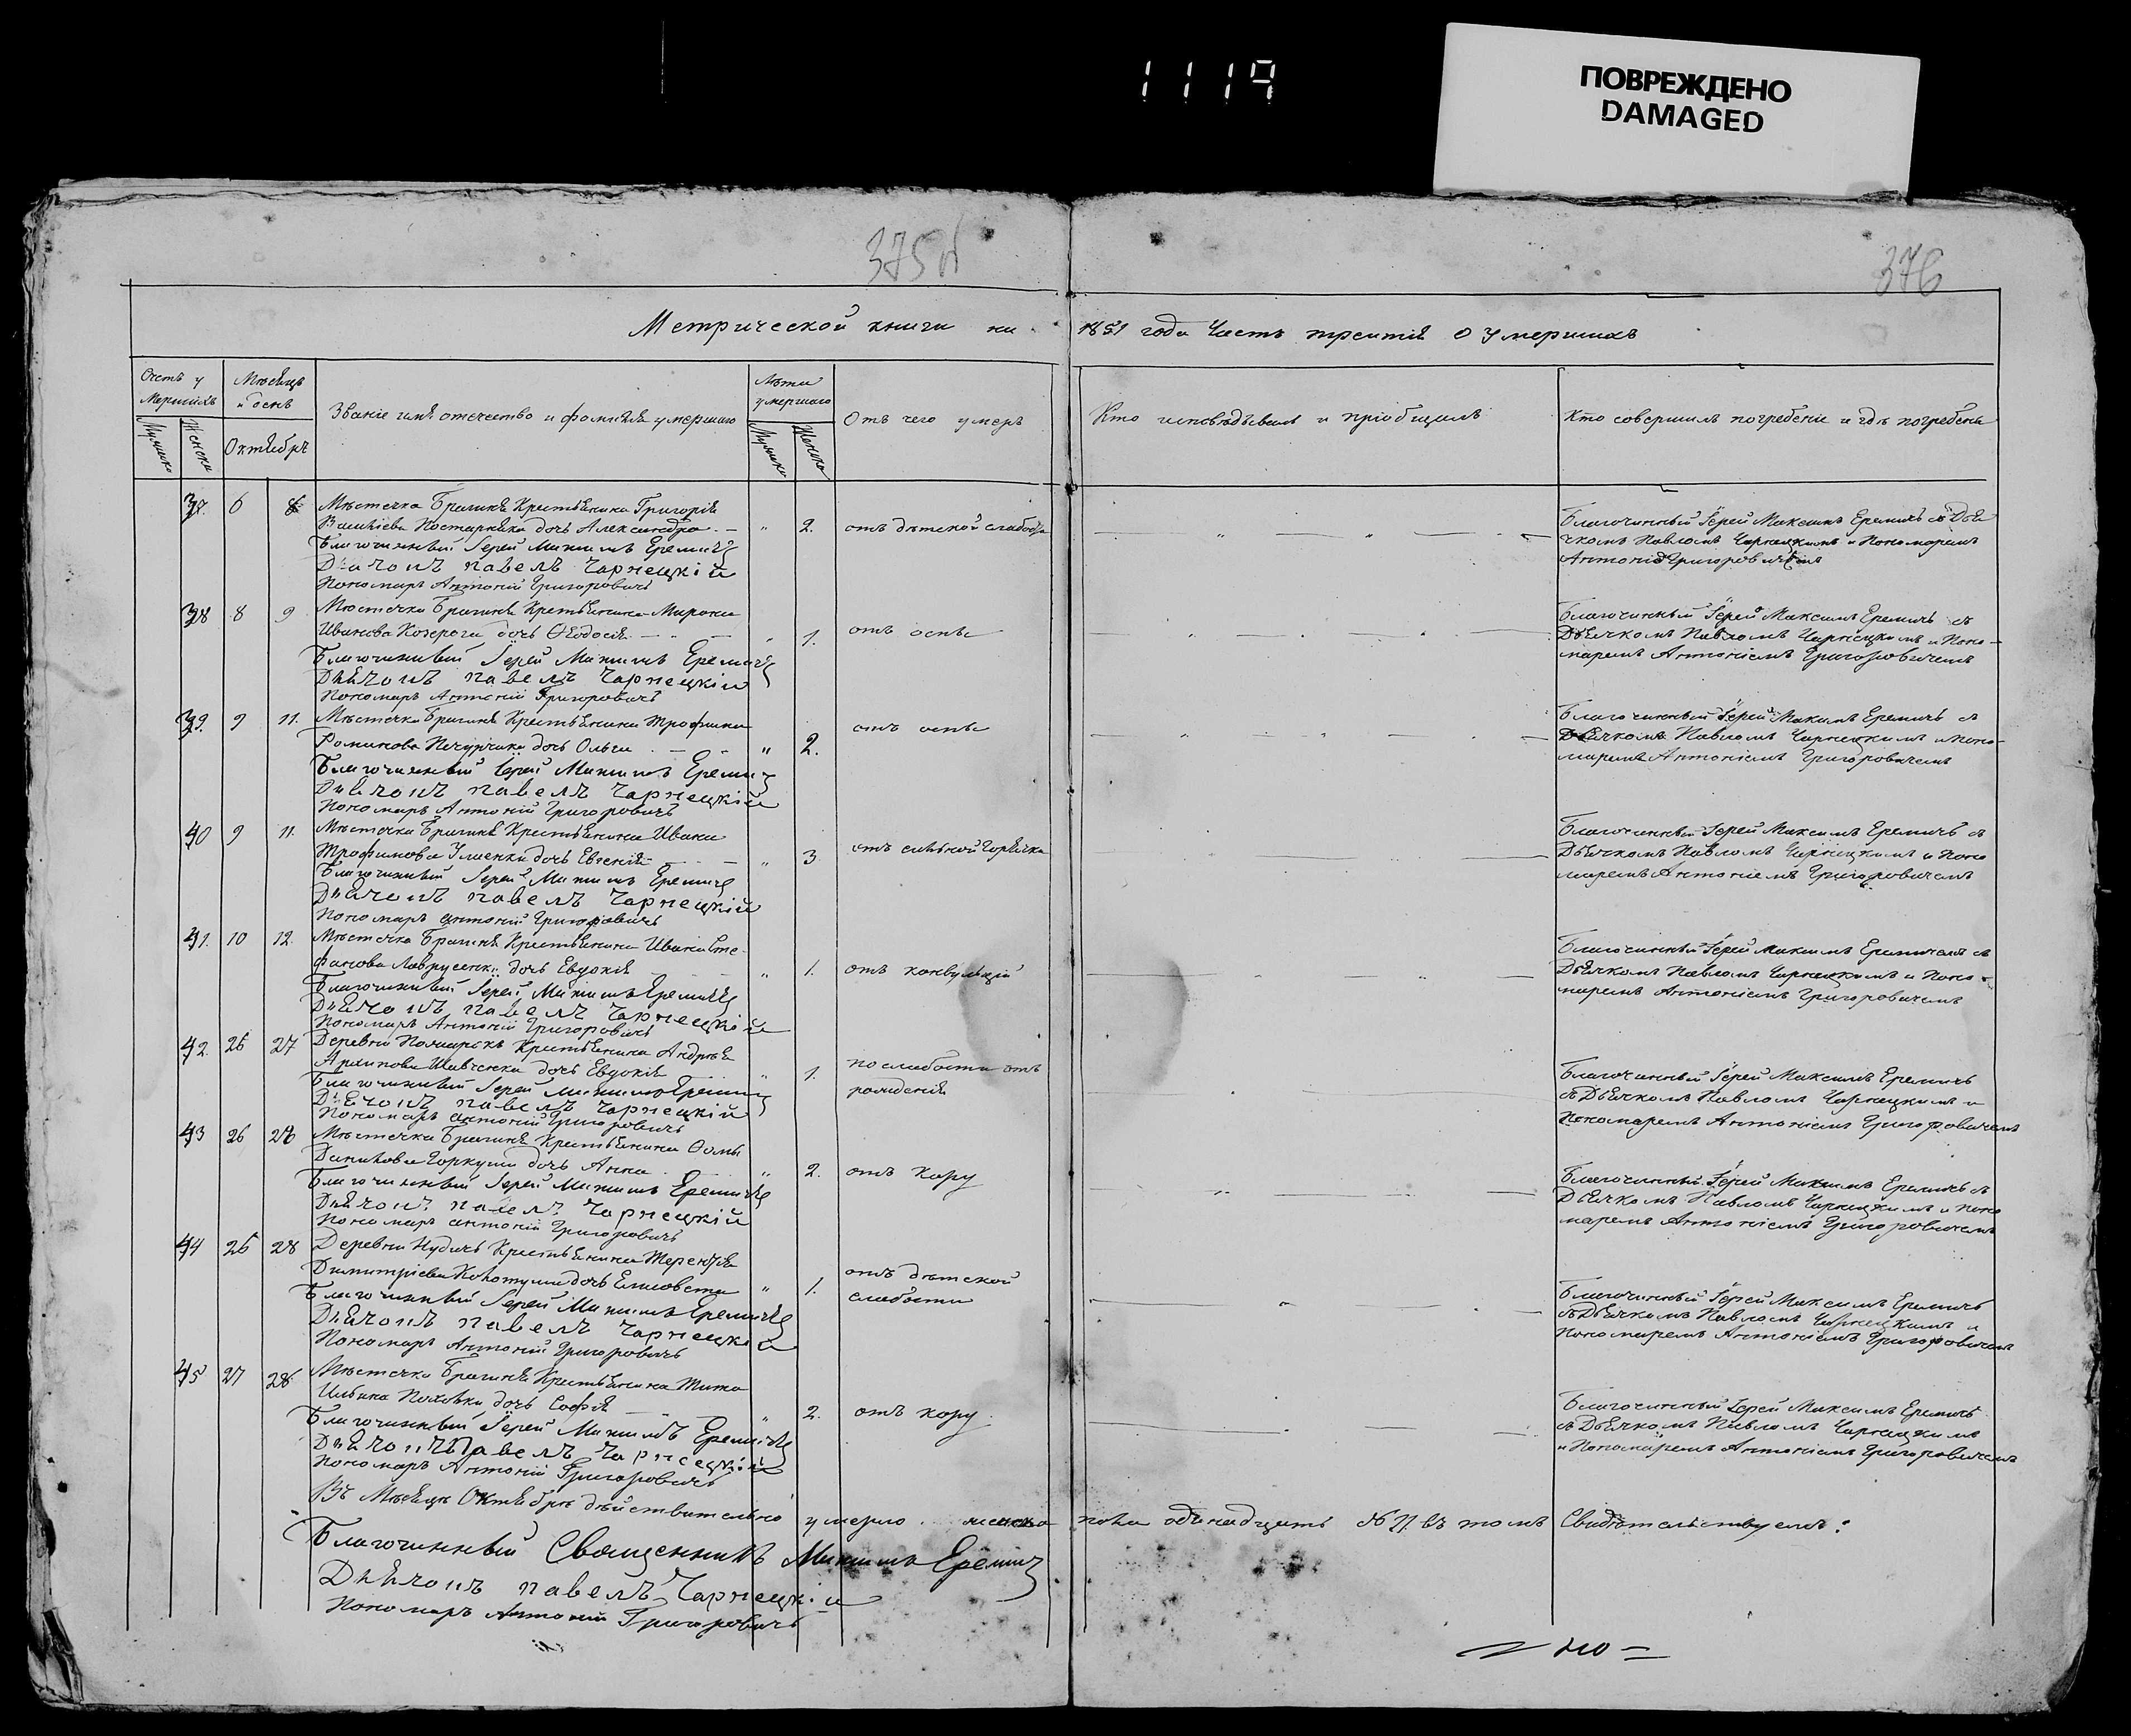 1119
ПОВРЕЖДЕНО
DAMAGED
375
376
Метрической книги на 1851 года Часть третія о умершихъ
Счетъ у
мершихъ
Мѣсяцъ
и день
Званіе имя отечество и фомилія умершаго
Лѣта
умершаго
Отъ чего умеръ
Кто исповѣдывалъ и пріобщилъ
Кто совершилъ погребеніе и гдѣ погребены
Октябрь
Женска
Женска
6
Мѣстечка Брагиня Крестьянина Григорія
дочь Александра " 2. отъ дѣтской слабости
Благочинный Іерей Максимъ Еремичъ
Дьячокъ павелъ Чарнецкій
Пономарь Антоній Григоровичъ
Благочинный Іерей Максимъ Еремичъ съ Дья
чкомъ Павломъ Чарнецкимъ и Пономаремъ
Антоніемъ Григоровичемъ
38 8 9 Мѣстечка Брагиня Крестьянина Мирона
Иванова Козероги дочь Ѳеодосія " 1. отъ оспы
Благочинный Іерей Максимъ Еремичъ
Дьячокъ павелъ Чарнецкій
Пономарь Антоній Григоровичъ
Благочинный Іерей Максимъ Еремичъ съ
Дьячкомъ Павломъ Чарнецкимъ и Поно-
маремъ Антоніемъ Григоровичемъ
39. 9 11. Мѣстечка Брагиня Крестьянина Трофима
Романова дочь Ольга " 2. отъ оспы
Благочинный Іерей Максимъ Еремичъ
Дьячокъ павелъ Чарнецкій
Пономарь Антоній Григоровичъ
Благочинный Іерей Максимъ Еремичъ съ
Дьячкомъ Павломъ Чарнецкимъ и Поно-
маремъ Антоніемъ Григоровичемъ
40 9 11. Мѣстечка Брагиня Крестьянина Ивана
Трофимова дочь Евгенія " 3 отъ сильной горячки
Благочинный Іерей Максимъ Еремичъ
Дьячокъ павелъ Чарнецкій
Пономарь антоній Григоровичъ
Благочинный Іерей Максимъ Еремичъ съ
Дьячкомъ Павломъ Чарнецкимъ и Поно
маремъ Антоніемъ Григоровичемъ
41. 10 12. Мѣстечка Брагиня Крестьянина Ивана Сте-
фанова дочь Евдокія " 1. отъ конвульцій
Благочинный Іерей Максимъ Еремичъ
Дьячокъ павелъ Чарнецкій
Пономарь Антоній Григоровичъ
Благочинный Іерей Максимъ Еремичемъ съ
Дьячкомъ Павломъ Чарнецкимъ и Поно-
маремъ Антоніемъ Григоровичемъ
42. 27 Деревни Крестьянина Андрѣя
Архипова Шевченка дочь Евдокія " 1. по слабости отъ
рожденія
Благочинный Іерей Максимъ Еремичъ
Дьячокъ павелъ Чарнецкій
Пономарь антоній Григоровичъ
Благочинный Іерей Максимъ Еремичъ
съ Дьячкомъ Павломъ Чарнецкимъ и
Пономаремъ Антоніемъ Григоровичемъ
43 26 Мѣстечка Брагиня Крестьянина Ѳомы
дочь Анна " 2. отъ кору
Благочинный Іерей Максимъ Еремичъ
Дьячокъ Чарнецкій
Пономарь антоній Григоровичъ
Благочинный Іерей Максимъ Еремичъ съ
Дьячкомъ Павломъ Чарнецкимъ и Поно
маремъ Антоніемъ Григоровичемъ
44 28 Деревни Крестьянина Терентія
Димитріева дочь Елисовета " 1. отъ дѣтской
слабости
Благочинный Іерей Максимъ Еремичъ
Дьячокъ павелъ Чарнецкій
Пономарь Антоній Григоровичъ
Благочинный Іерей Максимъ Еремичъ
съ Дьячкомъ Павломъ Чарнецкимъ и
Пономаремъ Антоніемъ Григоровичемъ
45 27 28 Мѣстечка Брагиня Крестьянина Тита
дочь Софія " 2. отъ кору
Благочинный Іерей Максимъ Еремичъ
Дьячокъ Павелъ Чарнецкій
Пономарь Антоній Григоровичъ
Благочинный Іерей Максимъ Еремичъ
съ Дьячкомъ Павломъ Чарнецкимъ
и Пономаремъ Антоніемъ Григоровичемъ
Въ Мѣсяцѣ Октябрѣ дѣйствительно умерло женска пола одинадцать № 11. въ томъ Свидѣтельствуемъ:
Благочинный Священникъ Максимъ Еремичъ
Дьячокъ павелъ Чарнецкій
Пономарь Антоній Григоровичъ